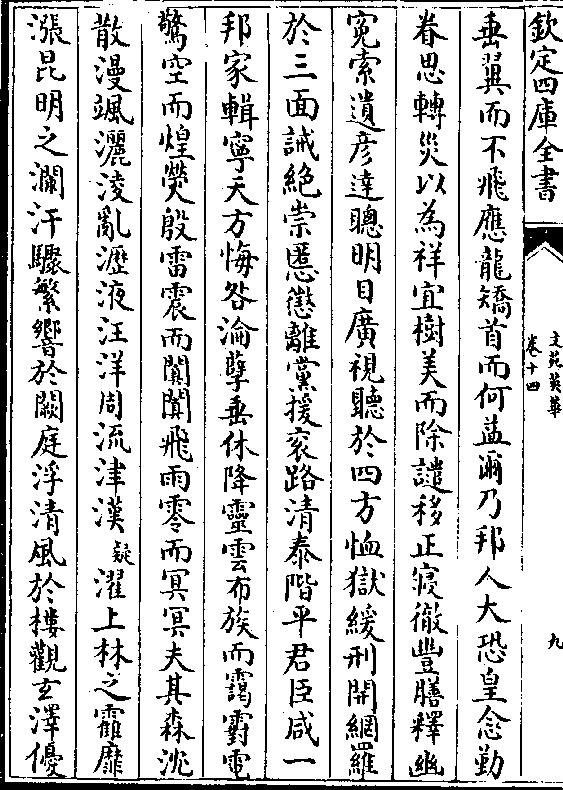 欽定四庫全書
文苑英華
卷十四
九
垂翼而不飛應龍矯首而何益爾乃邦人大恐皇念勤
眷思轉災以為祥宜樹美而除譴移正寢徹豐膳釋幽
寃索遺彦達聰明目廣視聽於四方恤獄緩刑開網羅
於三面誡絶崇慝懲離黨援衮路清泰階平君臣咸一
邦家輯寧天方悔咎淪孽垂休降靈雲布族而靄霨電
驚空而煌熒殷雷震而闐闐飛雨零而冥冥夫其森沈
散漫颯灑淩亂瀝液汪洋周流津漢疑濯上林之霏靡
漲昆明之瀾汗驟繁響於闕庭浮清風於樓觀玄澤優